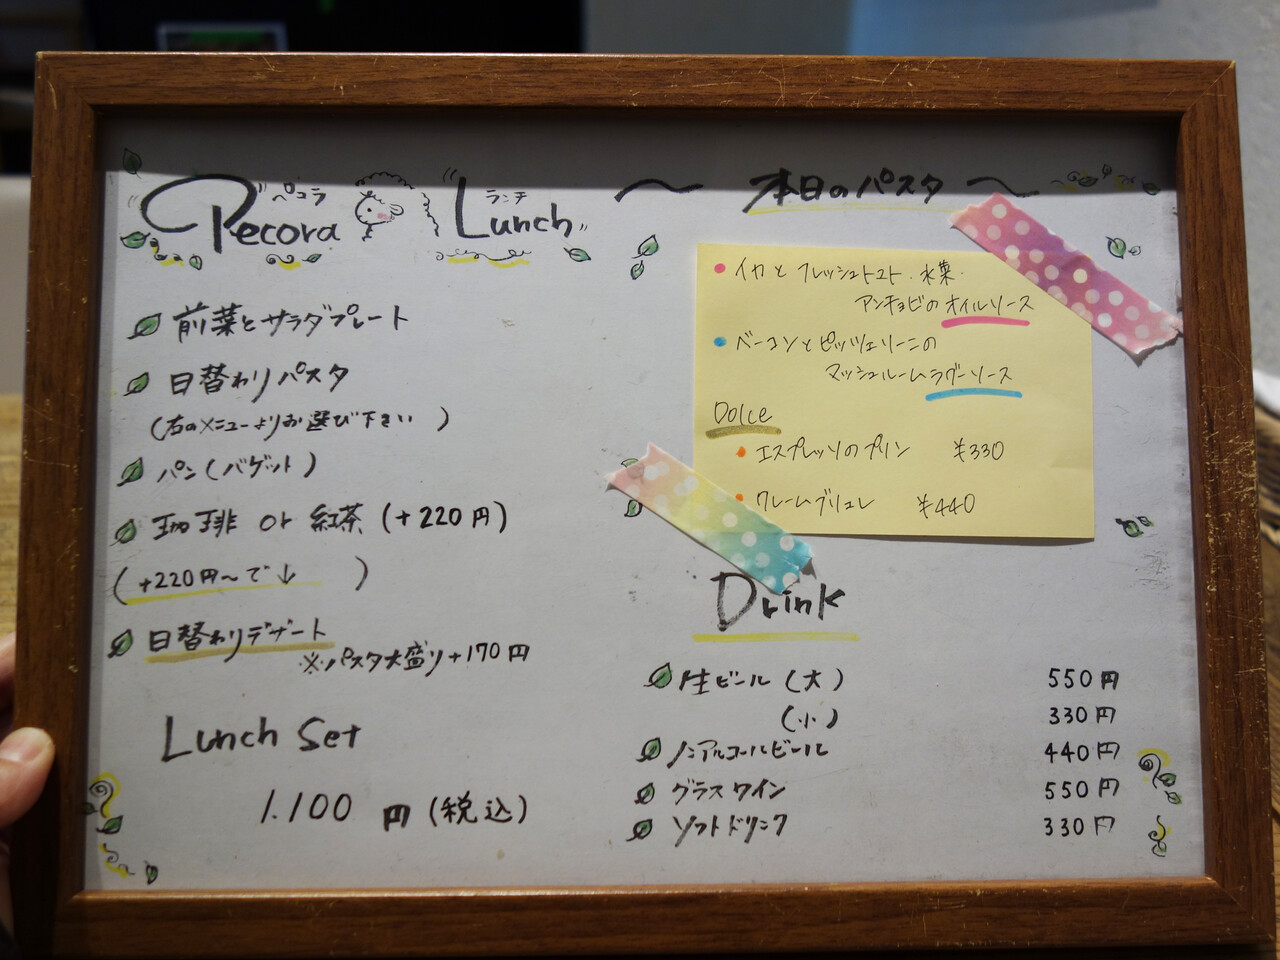 ペコラ ランチ
Pecora Lunch
前菜とサラダプレート
日替わりパスタ
(右のメニューよりお選び下さい)
パン(バゲット)
珈琲 or 紅茶(+220円)
(+220円〜で↓)
日替わりデザート
※パスタ大盛り+170円
Lunch Set
1.100円(税込)
〜本日のパスタ〜
・イカとフレッシュトマト、水菜、
アンチョビのオイルソース
・ベーコンとピッツェリーニの
マッシュルームラグーソース
Dolce
・エスプレッソのプリン ¥330
・クレームブリュレ ¥440
Drink
生ビール(大) 550円
(小) 330円
ノンアルコールビール 440円
グラスワイン 550円
ソフトドリンク 330円